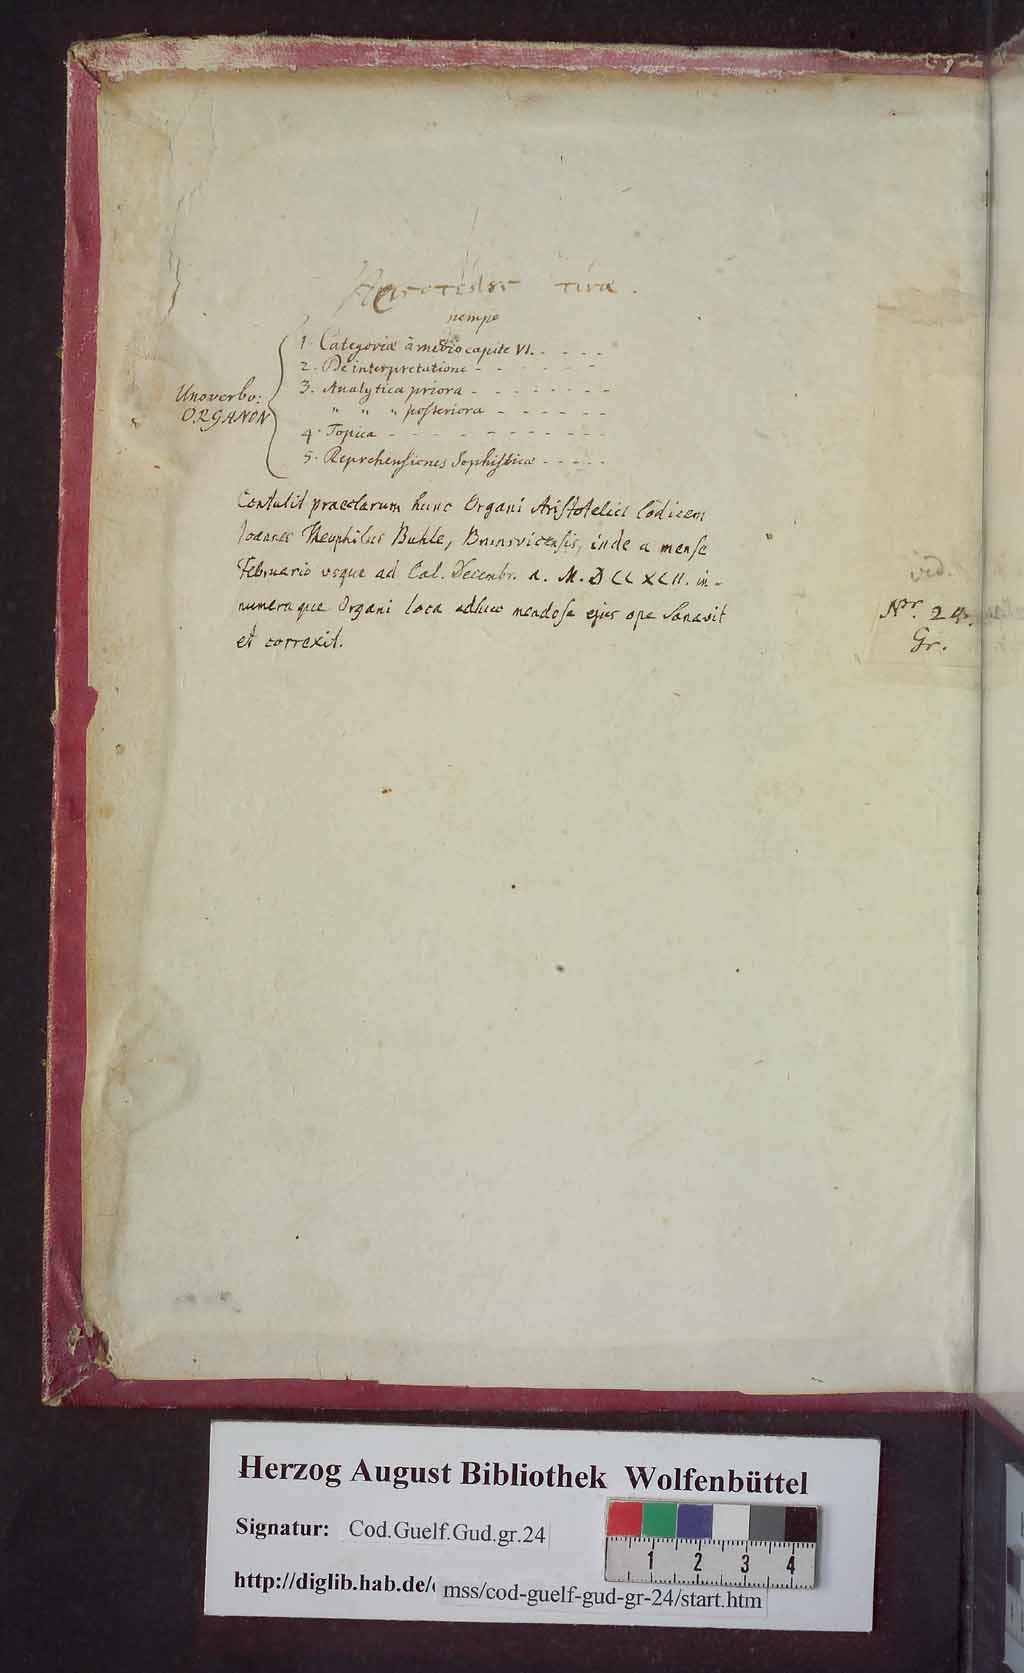 Ἀριστοτέλους τινα.
nempe
1. Categoriæ à medio capite VI. - - - -
2. De interpretatione - - - - - -
Uno verbo:
ORGANON
3. Analytica priora - - - - - - - -
" " " posteriora - - - - - -
4. Topica - - - - - - - - - -
5. Reprehensiones Sophisticæ - - - - -
Contulit praeclarum hunc Organi Aristotelici Codicem
Ioannes Theophilus Buhle, Brunsvicensis, inde a mense
Februario usque ad Cal. Decembr. a. M.DCCXCII. in-
numeraque Organi loca adhuc mendosa ejus ope sanavit
et correxit.
Nr. 24.
Gr.
Herzog August Bibliothek Wolfenbüttel
Signatur: Cod.Guelf.Gud.gr.24
http://diglib.hab.de/ mss/cod-guelf-gud-gr-24/start.htm
1 2 3 4